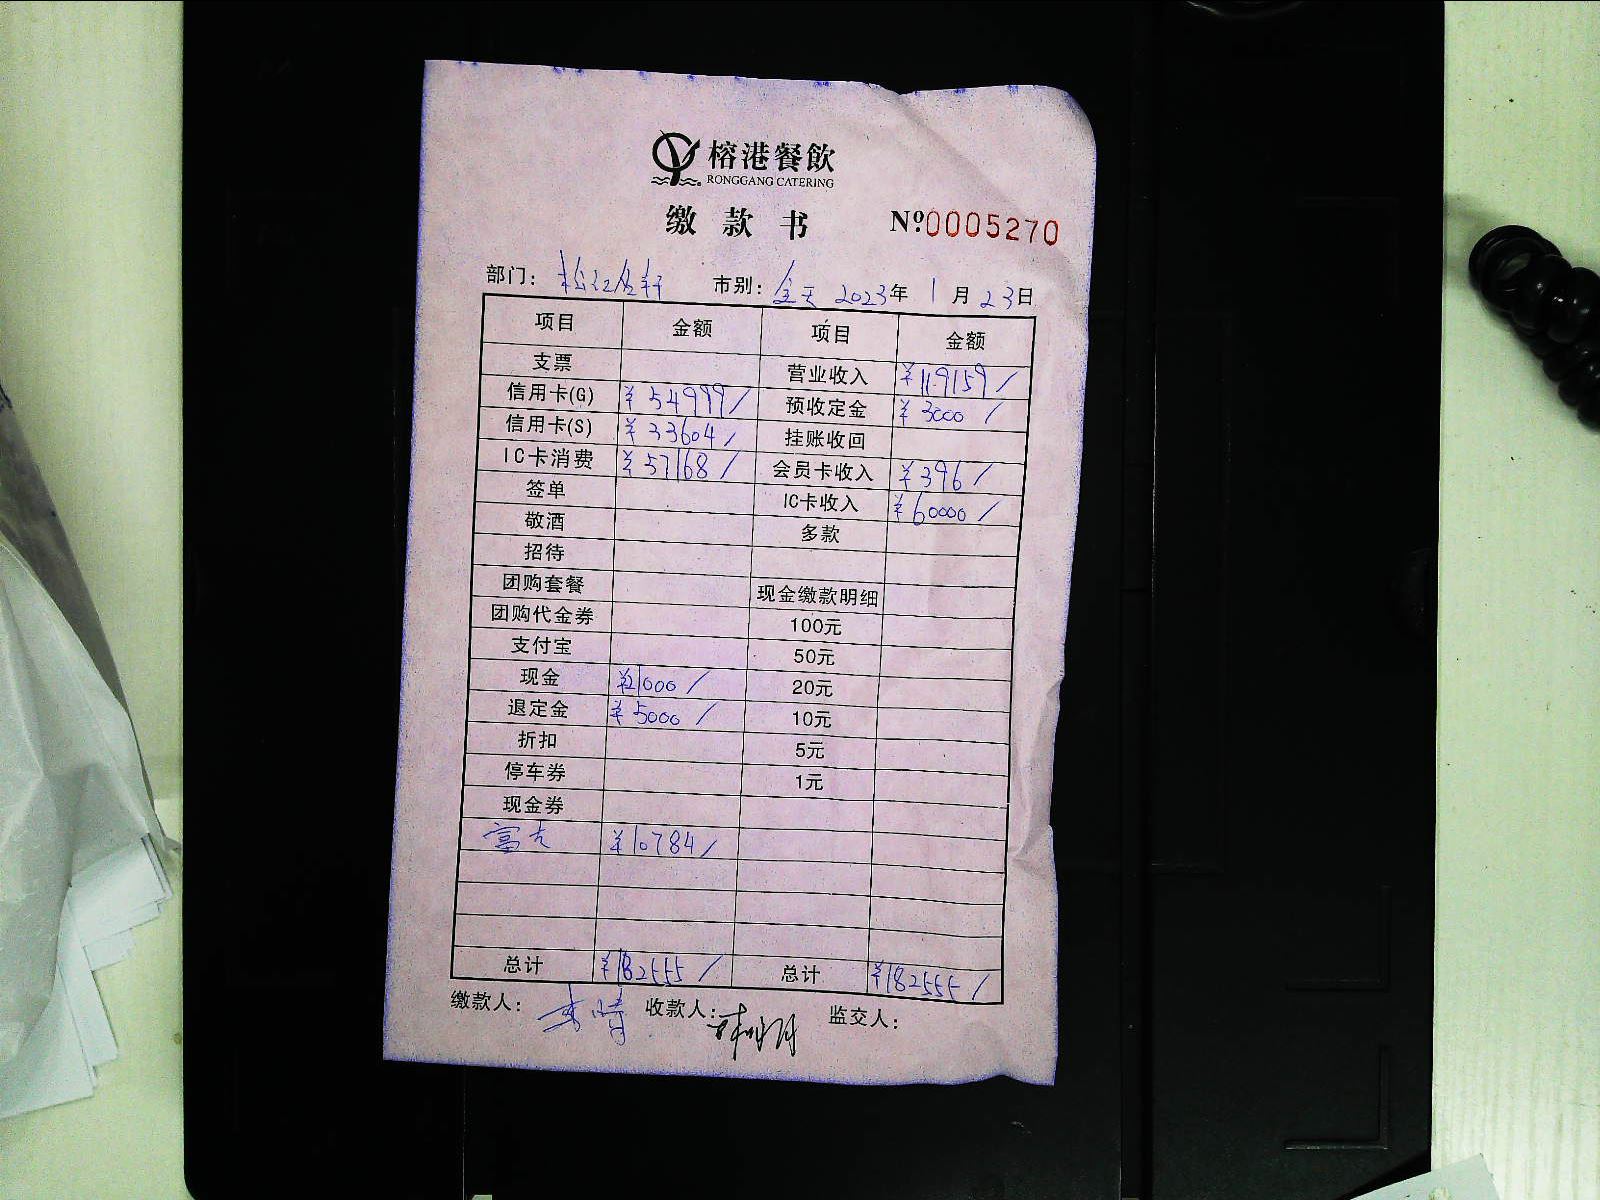 榕港餐飲
RONGGANG CATERING
缴款书 Nº0005270
部门: 松江名轩 市别: 全天 2023年1月23日
项目 金额 项目 金额
支票 营业收入 ¥119159/
信用卡(G) ¥54999/ 预收定金 ¥3000/
信用卡(S) ¥33604/ 挂账收回
IC卡消费 ¥57168/ 会员卡收入 ¥396/
签单 IC卡收入 ¥60000/
敬酒 多款
招待
团购套餐 现金缴款明细
团购代金券 100元
支付宝 50元
现金 ¥21000/ 20元
退定金 ¥5000/ 10元
折扣 5元
停车券 1元
现金券
¥10784/
总计 ¥182555/ 总计 ¥182555/
缴款人: 收款人: 监交人: